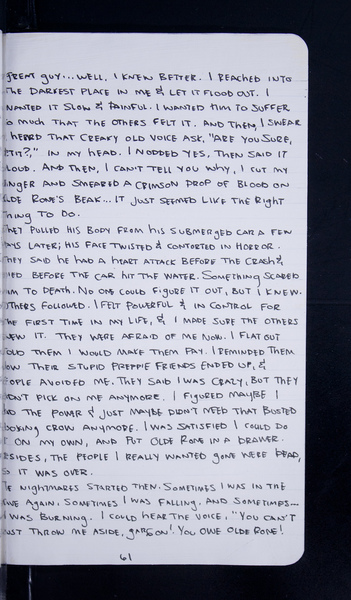 GREAT GUY... WELL, I KNEW BETTER. I REACHED INTO
THE DARKEST PLACE IN ME & LET IT FLOOD OUT. I
WANTED IT SLOW & PAINFUL. I WANTED HIM TO SUFFER
SO MUCH THAT THE OTHERS FELT IT. AND THEN, I SWEAR
I HEARD THAT CREAKY OLD VOICE ASK, "ARE YOU SURE,
?," IN MY HEAD. I NODDED YES, THEN SAID IT
LOUD. AND THEN, I CAN'T TELL YOU WHY, I CUT MY
FINGER AND SMEARED A CRIMSON DROP OF BLOOD ON
OLDE RONE'S BEAK... IT JUST SEEMED LIKE THE RIGHT
THING TO DO.
THEY PULLED HIS BODY FROM HIS SUBMERGED CAR A FEW
DAYS LATER; HIS FACE TWISTED & CONTORTED IN HORROR.
THEY SAID HE HAD A HEART ATTACK BEFORE THE CRASH &
DIED BEFORE THE CAR HIT THE WATER. SOMETHING SCARED
HIM TO DEATH. NO ONE COULD FIGURE IT OUT, BUT I KNEW.
OTHERS FOLLOWED. I FELT POWERFUL & IN CONTROL FOR
THE FIRST TIME IN MY LIFE, & I MADE SURE THE OTHERS
KNEW IT. THEY WERE AFRAID OF ME NOW. I FLAT OUT
TOLD THEM I WOULD MAKE THEM PAY. I REMINDED THEM
HOW THEIR STUPID PREPPIE FRIENDS ENDED UP, &
PEOPLE AVOIDED ME. THEY SAID I WAS CRAZY, BUT THEY
DIDN'T PICK ON ME ANYMORE. I FIGURED MAYBE I
HAD THE POWER & JUST MAYBE DIDN'T NEED THAT BUSTED
LOOKING CROW ANYMORE. I WAS SATISFIED I COULD DO
IT ON MY OWN, AND PUT OLDE RONE IN A DRAWER.
BESIDES, THE PEOPLE I REALLY WANTED GONE WERE DEAD,
SO IT WAS OVER.
THE NIGHTMARES STARTED THEN. SOMETIMES I WAS IN THE
AGAIN, SOMETIMES I WAS FALLING. AND SOMETIMES...
I WAS BURNING. I COULD HEAR THE VOICE, "YOU CAN'T
JUST THROW ME ASIDE, ! YOU OWE OLDE RONE!
61